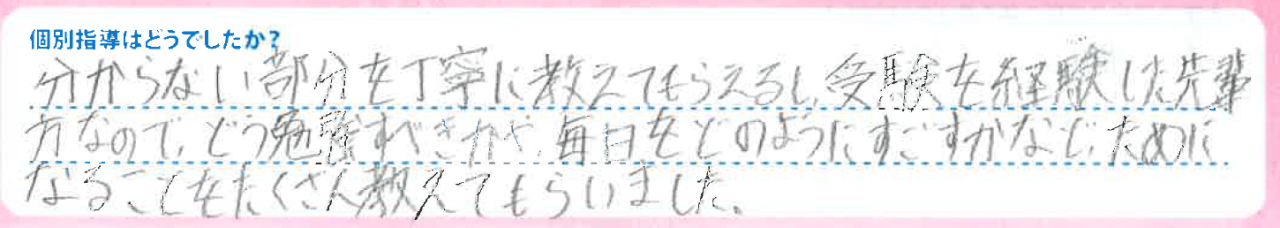 個別指導はどうでしたか?
分からない部分を丁寧に教えてもらえるし、受験を経験した先輩
方なので、どう勉強すべきかや、毎日をどのようにすごすかなど、ために
なることをたくさん教えてもらいました。